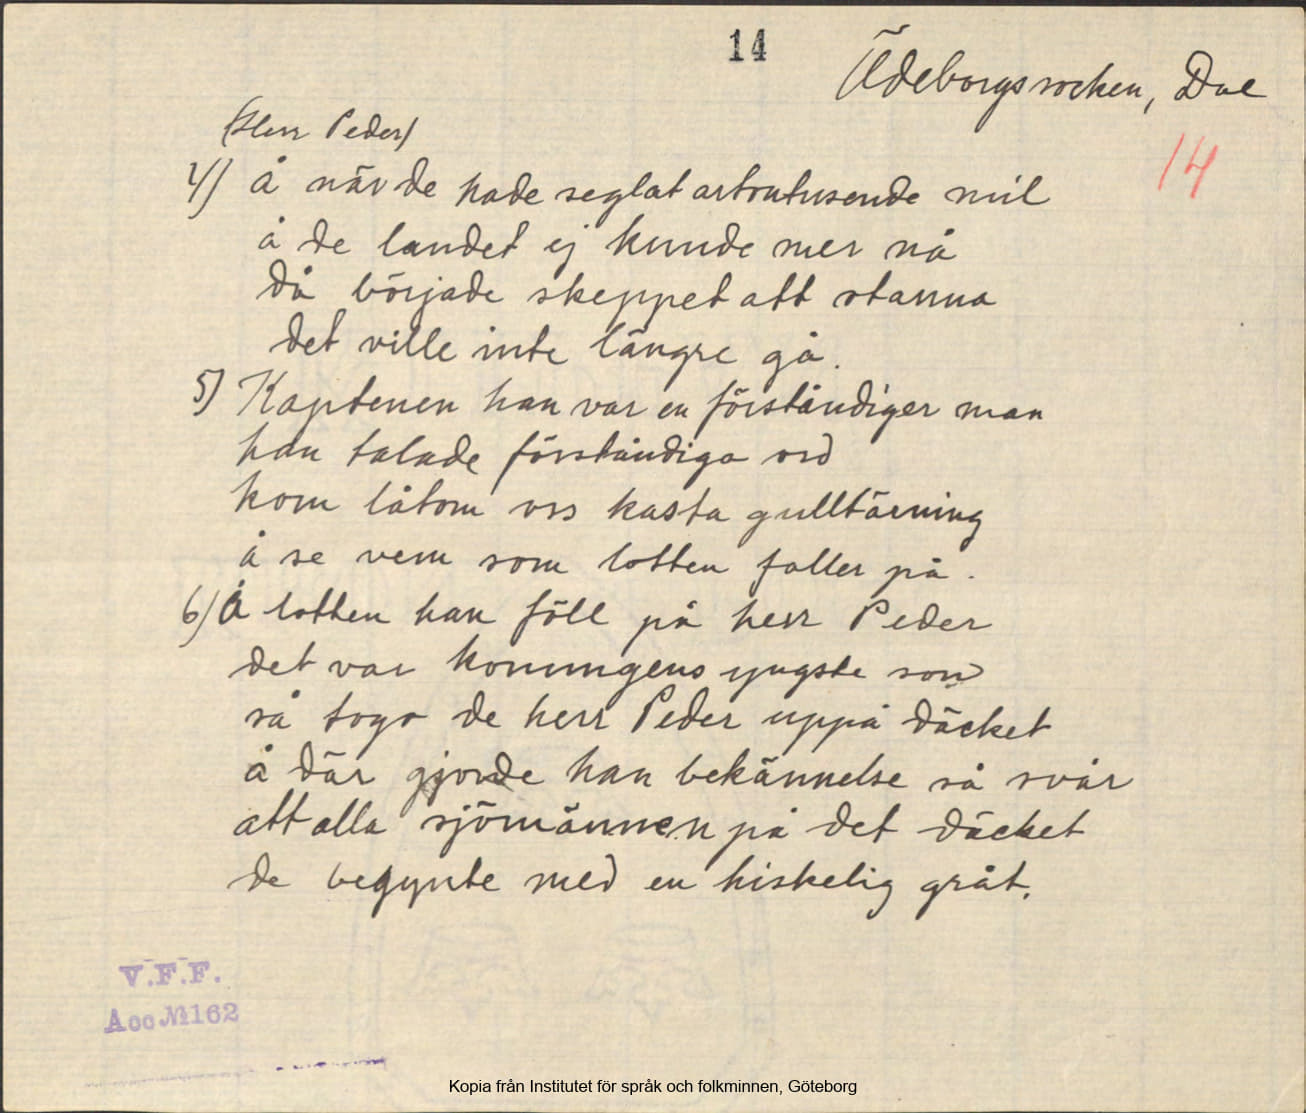 14
Ödeborgssocken, Dal
14
(Herr Peder)
4) Å när de hade seglat artontusende mil
å de landet ej kunde mer nå
då började skeppet att stanna
det ville inte längre gå.
5) Kaptenen han var en förståndiger man
han talade förståndiga ord
kom låtom oss kasta gulltärning
å se vem som lotten faller på.
6) Å lotten han föll på herr Peder
det var konungens yngste son
så togo de herr Peder uppå däcket
å där gjorde han bekännelse så svår
att alla sjömännen på det däcket
de begynte med en hiskelig gråt.
V.F.F.
Acc № 162
Kopia från Institutet för språk och folkminnen, Göteborg